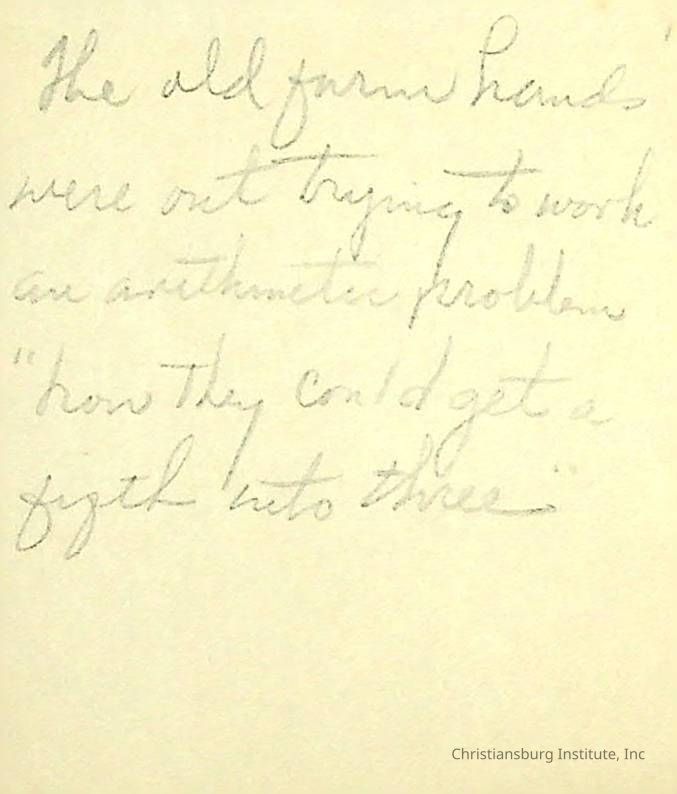 The old farm hands
were out trying to work
an arithmetic problem
"how they could get a
fifth into three"
Christiansburg Institute, Inc